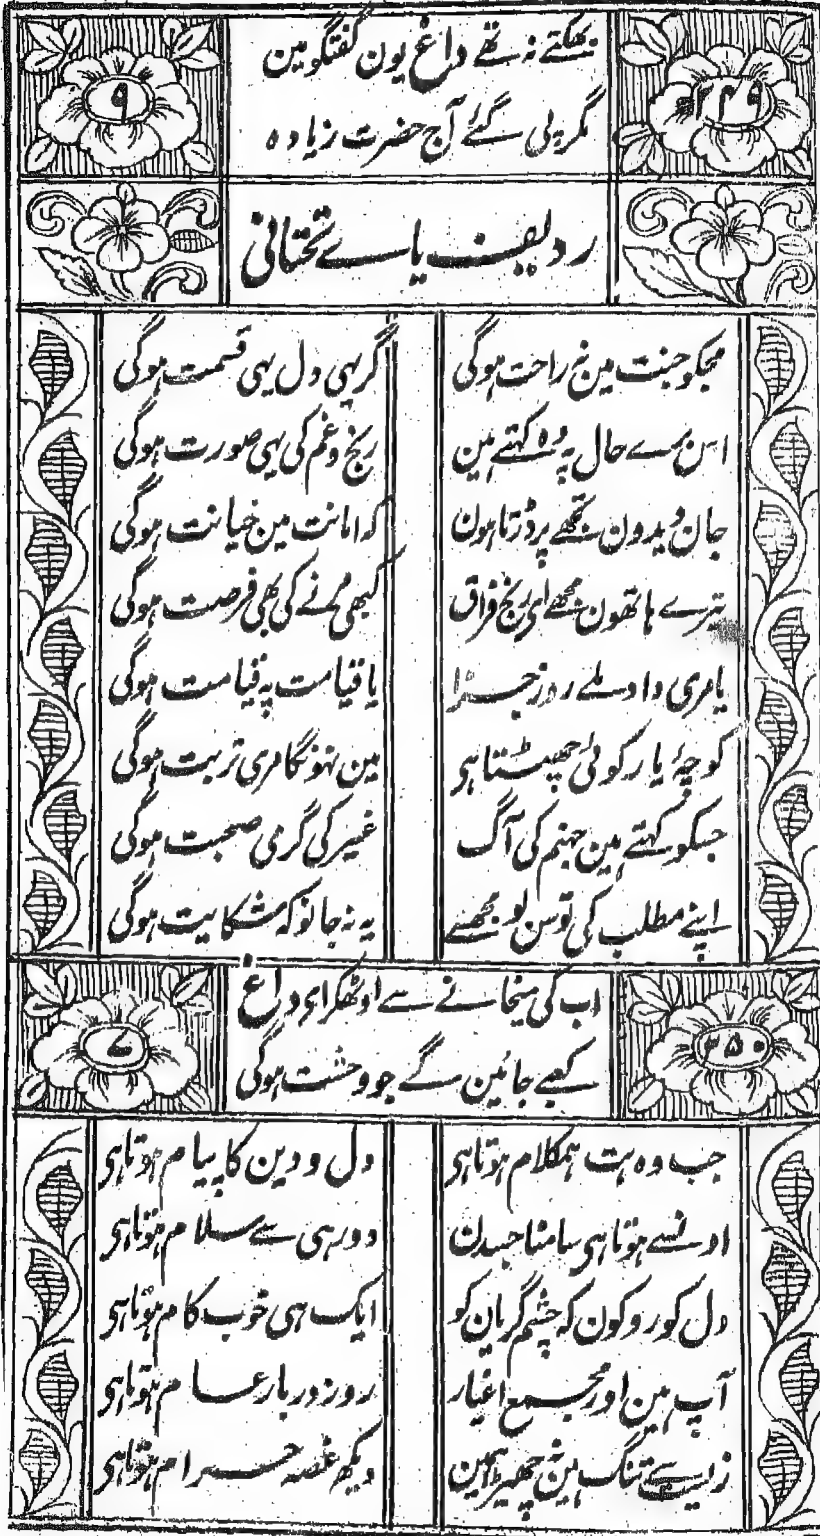 ۲۴۹
۹
بہکتے نہ تھے داغ یون گفتگو مین
مگر پی گئے آج حضرت زیادہ
ردیف یاے تحتانی
مجکو جنت مین نہ راحت ہوگی
گر یہی دل یہی قسمت ہوگی
اس برے حال پہ وہ کہتے ہین
رنج و غم کی یہی صورت ہوگی
جان دیدون تجھے پر ڈرتا ہون
کہ امانت مین خیانت ہوگی
تیرے ہاتھون مجھے ای رنج فراق
کبھی مرنے کی بھی فرصت ہوگی
یا مری داد ملے روز جزا
یا قیامت پہ قیامت ہوگی
کوچۂ یار کوئی چھپتا ہی
مین نہونگا مری تربت ہوگی
جسکو کہتے ہین جہنم کی آگ
غیر کی گرمی صحبت ہوگی
اپنے مطلب کی تو سن لو مجھسے
یہ نہ جانو کہ شکایت ہوگی
۲۵۰
۷
اب کی میخانے سے اوٹھکر ای داغ
کعبے جائین گے جو وحشت ہوگی
جب وہ بت ہمکلام ہوتا ہی
دل و دین کا پیام ہوتا ہی
اونسے ہوتا ہی سامنا جسدن
دور ہی سے سلام ہوتا ہی
دل کو روکون کہ چشم گریان کو
ایک ہی خوب کام ہوتا ہی
آپ ہین اور مجمع اغیار
روز دربار عام ہوتا ہی
زیست سے تنگ ہین نہ چھیڑ ہمین
دیکھ غصہ حرام ہوتا ہی